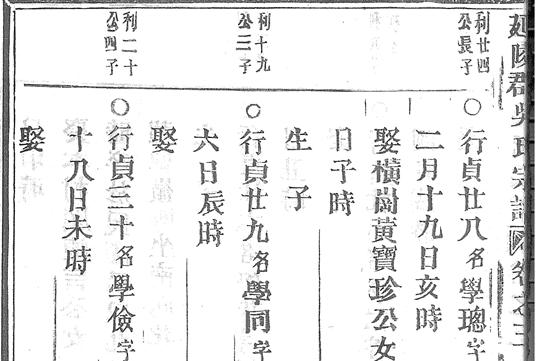 延陵郡吳氏宗譜 卷之三
利廿四
公長子
○行貞廿八名學璁字
二月十九日亥時
娶橫崗黃寶珍公女
日子時
生子
利十九
公三子
○行貞廿九名學同字
六日辰時
娶
利二十
公四子
○行貞三十名學儉字
十八日未時
娶